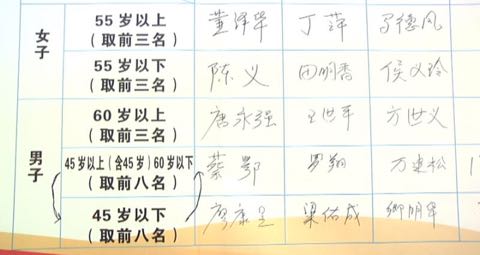 女子
55岁以上
（取前三名） 丁萍
55岁以下
（取前三名） 陈义 田明香 侯义玲
男子
60岁以上
（取前三名） 唐永强 王世军 方世义
45岁以上（含45岁）60岁以下
（取前八名） 蔡鄂 罗翔 万建松
45岁以下
（取前八名） 梁佑成